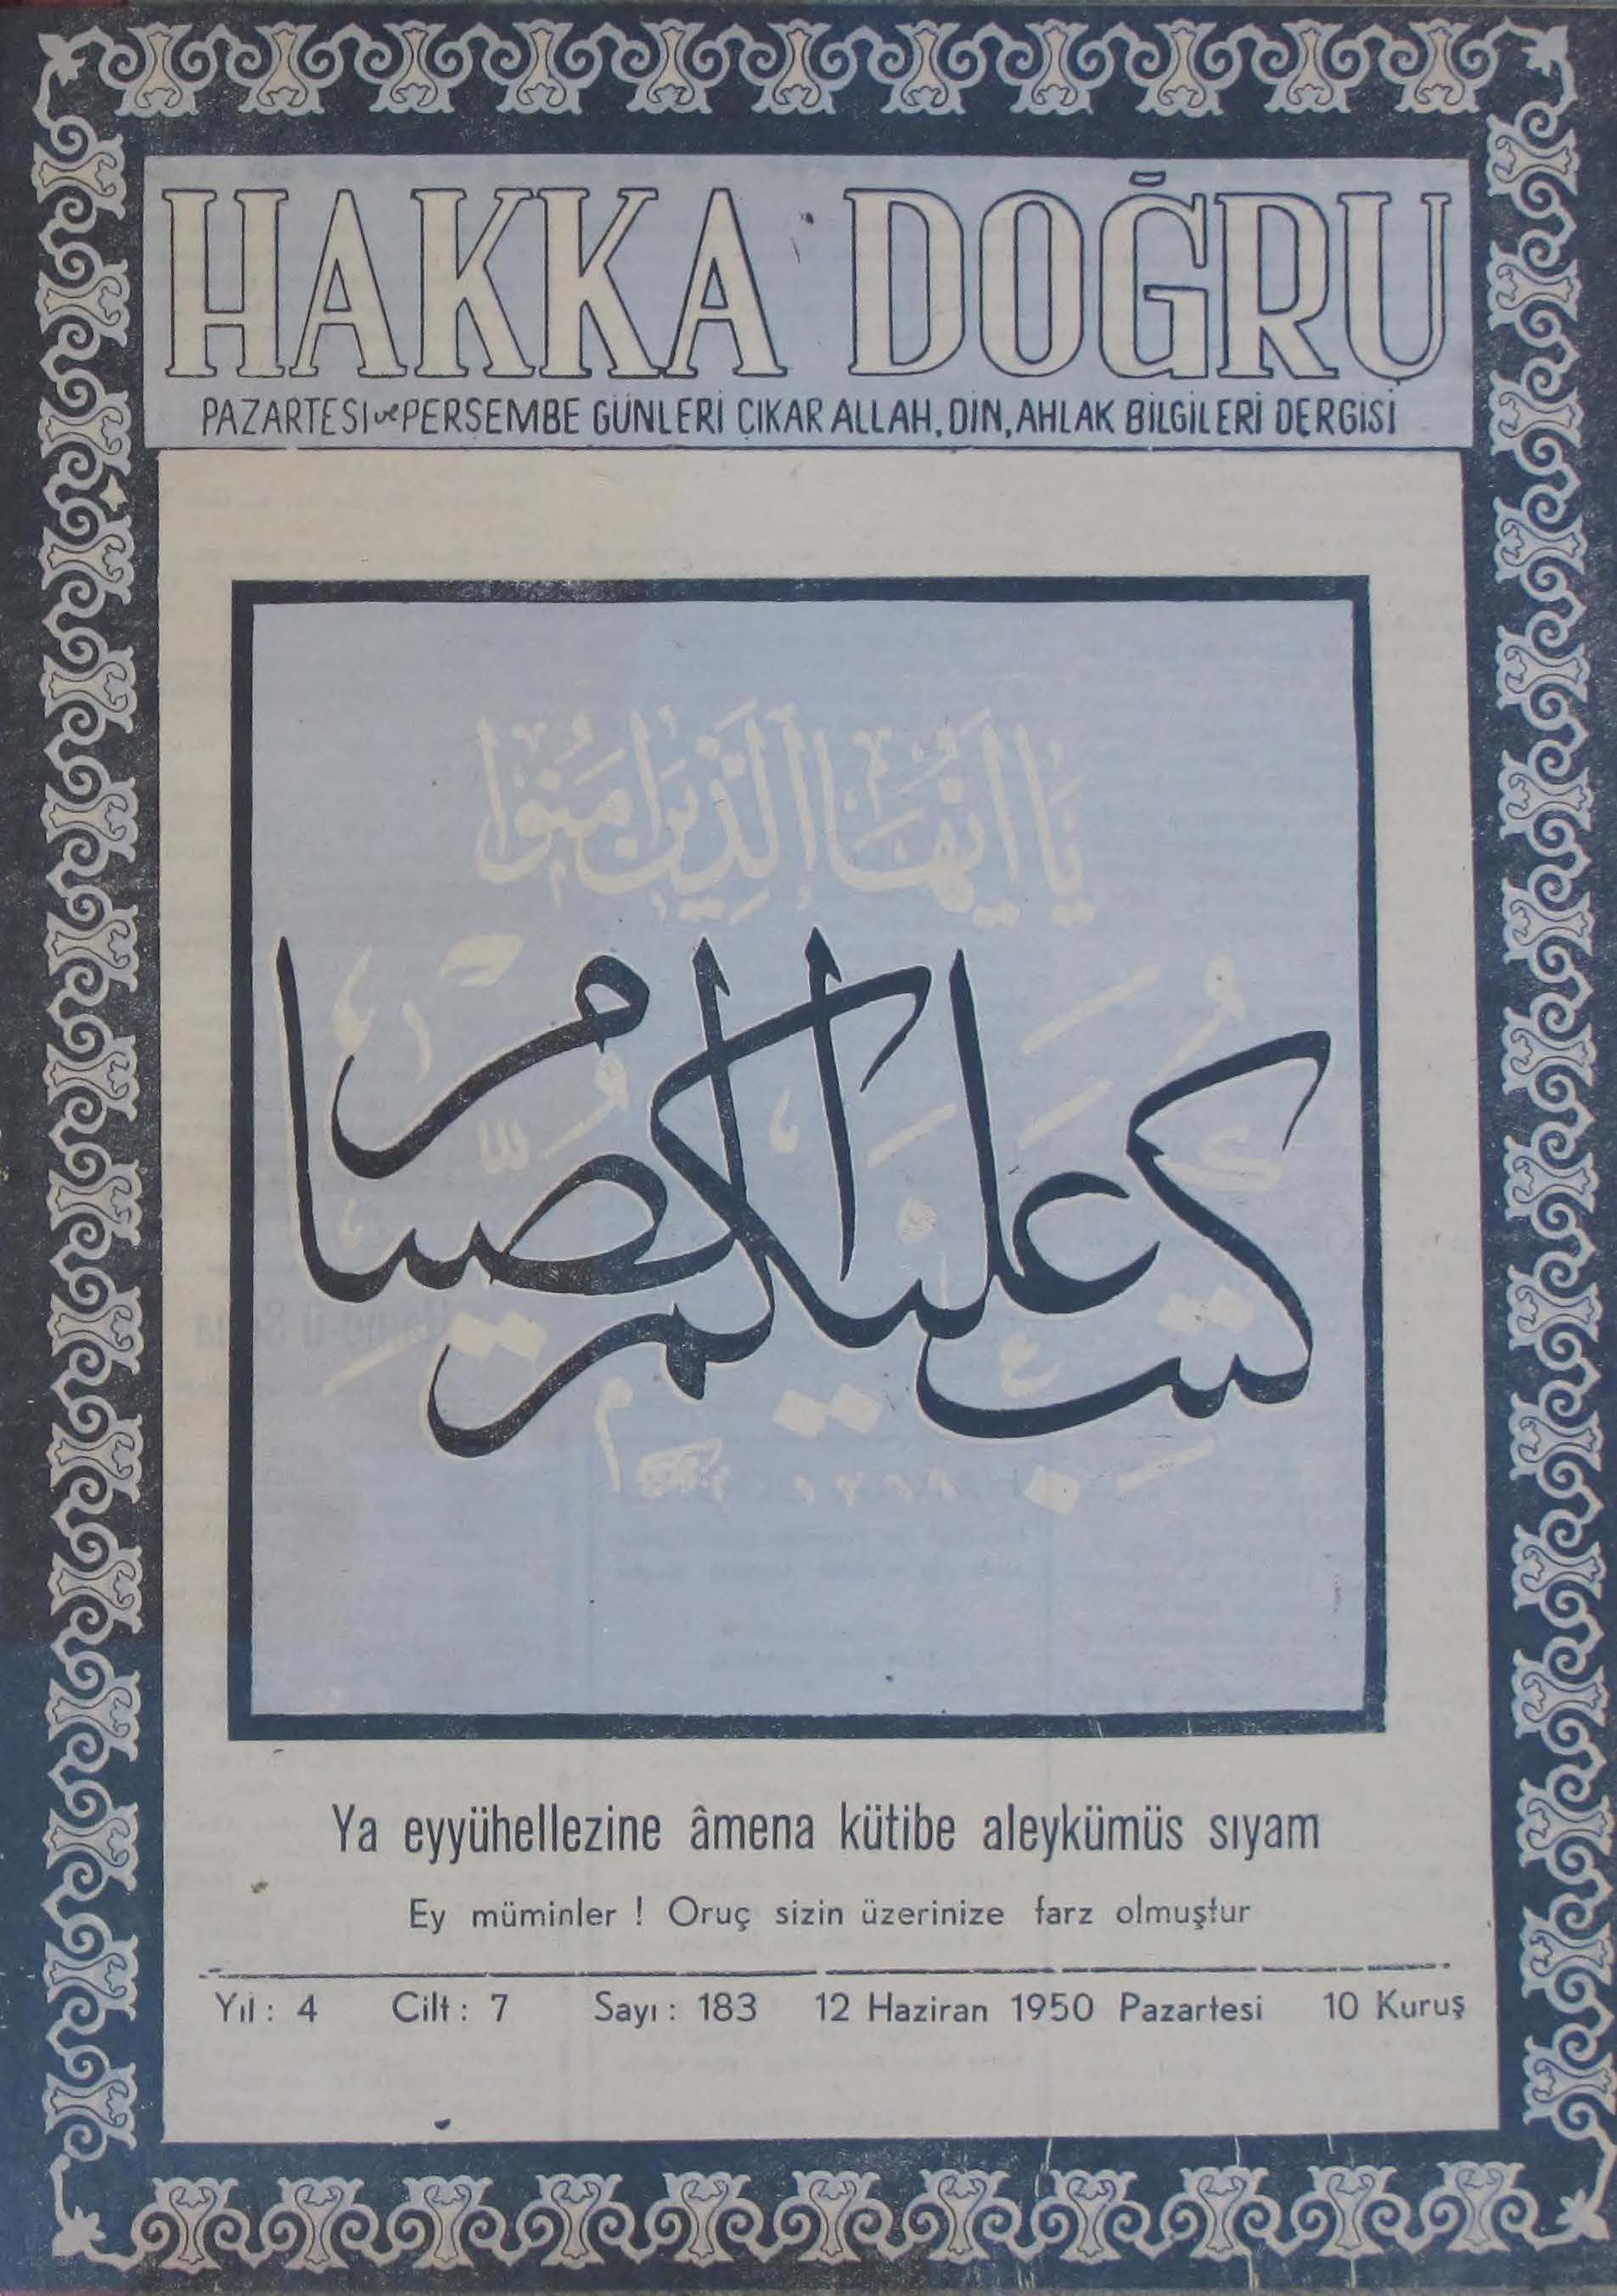 HAKKA DOĞRU
PAZARTESI ve PERŞEMBE GÜNLERİ ÇIKAR ALLAH, DİN, AHLAK BİLGİLERİ DERGİSİ
يَا أَيُّهَا الَّذِينَ آمَنُوا
كُتِبَ عَلَيْكُمُ الصِّيَامُ
Ya eyyühellezine âmena kütibe aleykümüs sıyam
Ey müminler ! Oruç sizin üzerinize farz olmuştur
Yıl : 4 Cilt : 7 Sayı : 183 12 Haziran 1950 Pazartesi 10 Kuruş